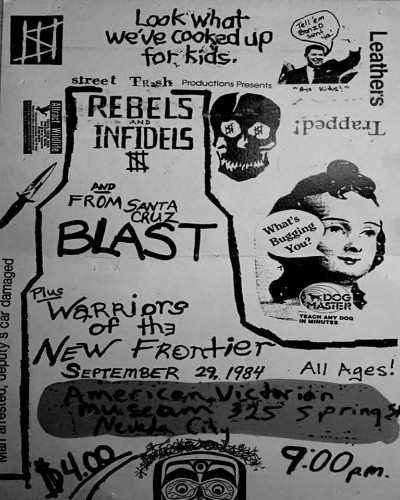 Look what
we've cooked up
for kids.
Tell 'em
Bonzo
sent ya!
"Bye Kids!"
Leathers
Street Trash Productions Presents
Trapped!
REBELS
AND
INFIDELS
AND
FROM SANTA
CRUZ
BLAST
What's
Bugging
You?
DOG
MASTER
TEACH ANY DOG
IN MINUTES
Plus
Warriors
of the
New Frontier
SEPTEMBER 29, 1984 All Ages!
American Victorian
museum 325 Spring St
Nevada City
Man arrested, deputy's car damaged
$4.00
9:00 p.m.